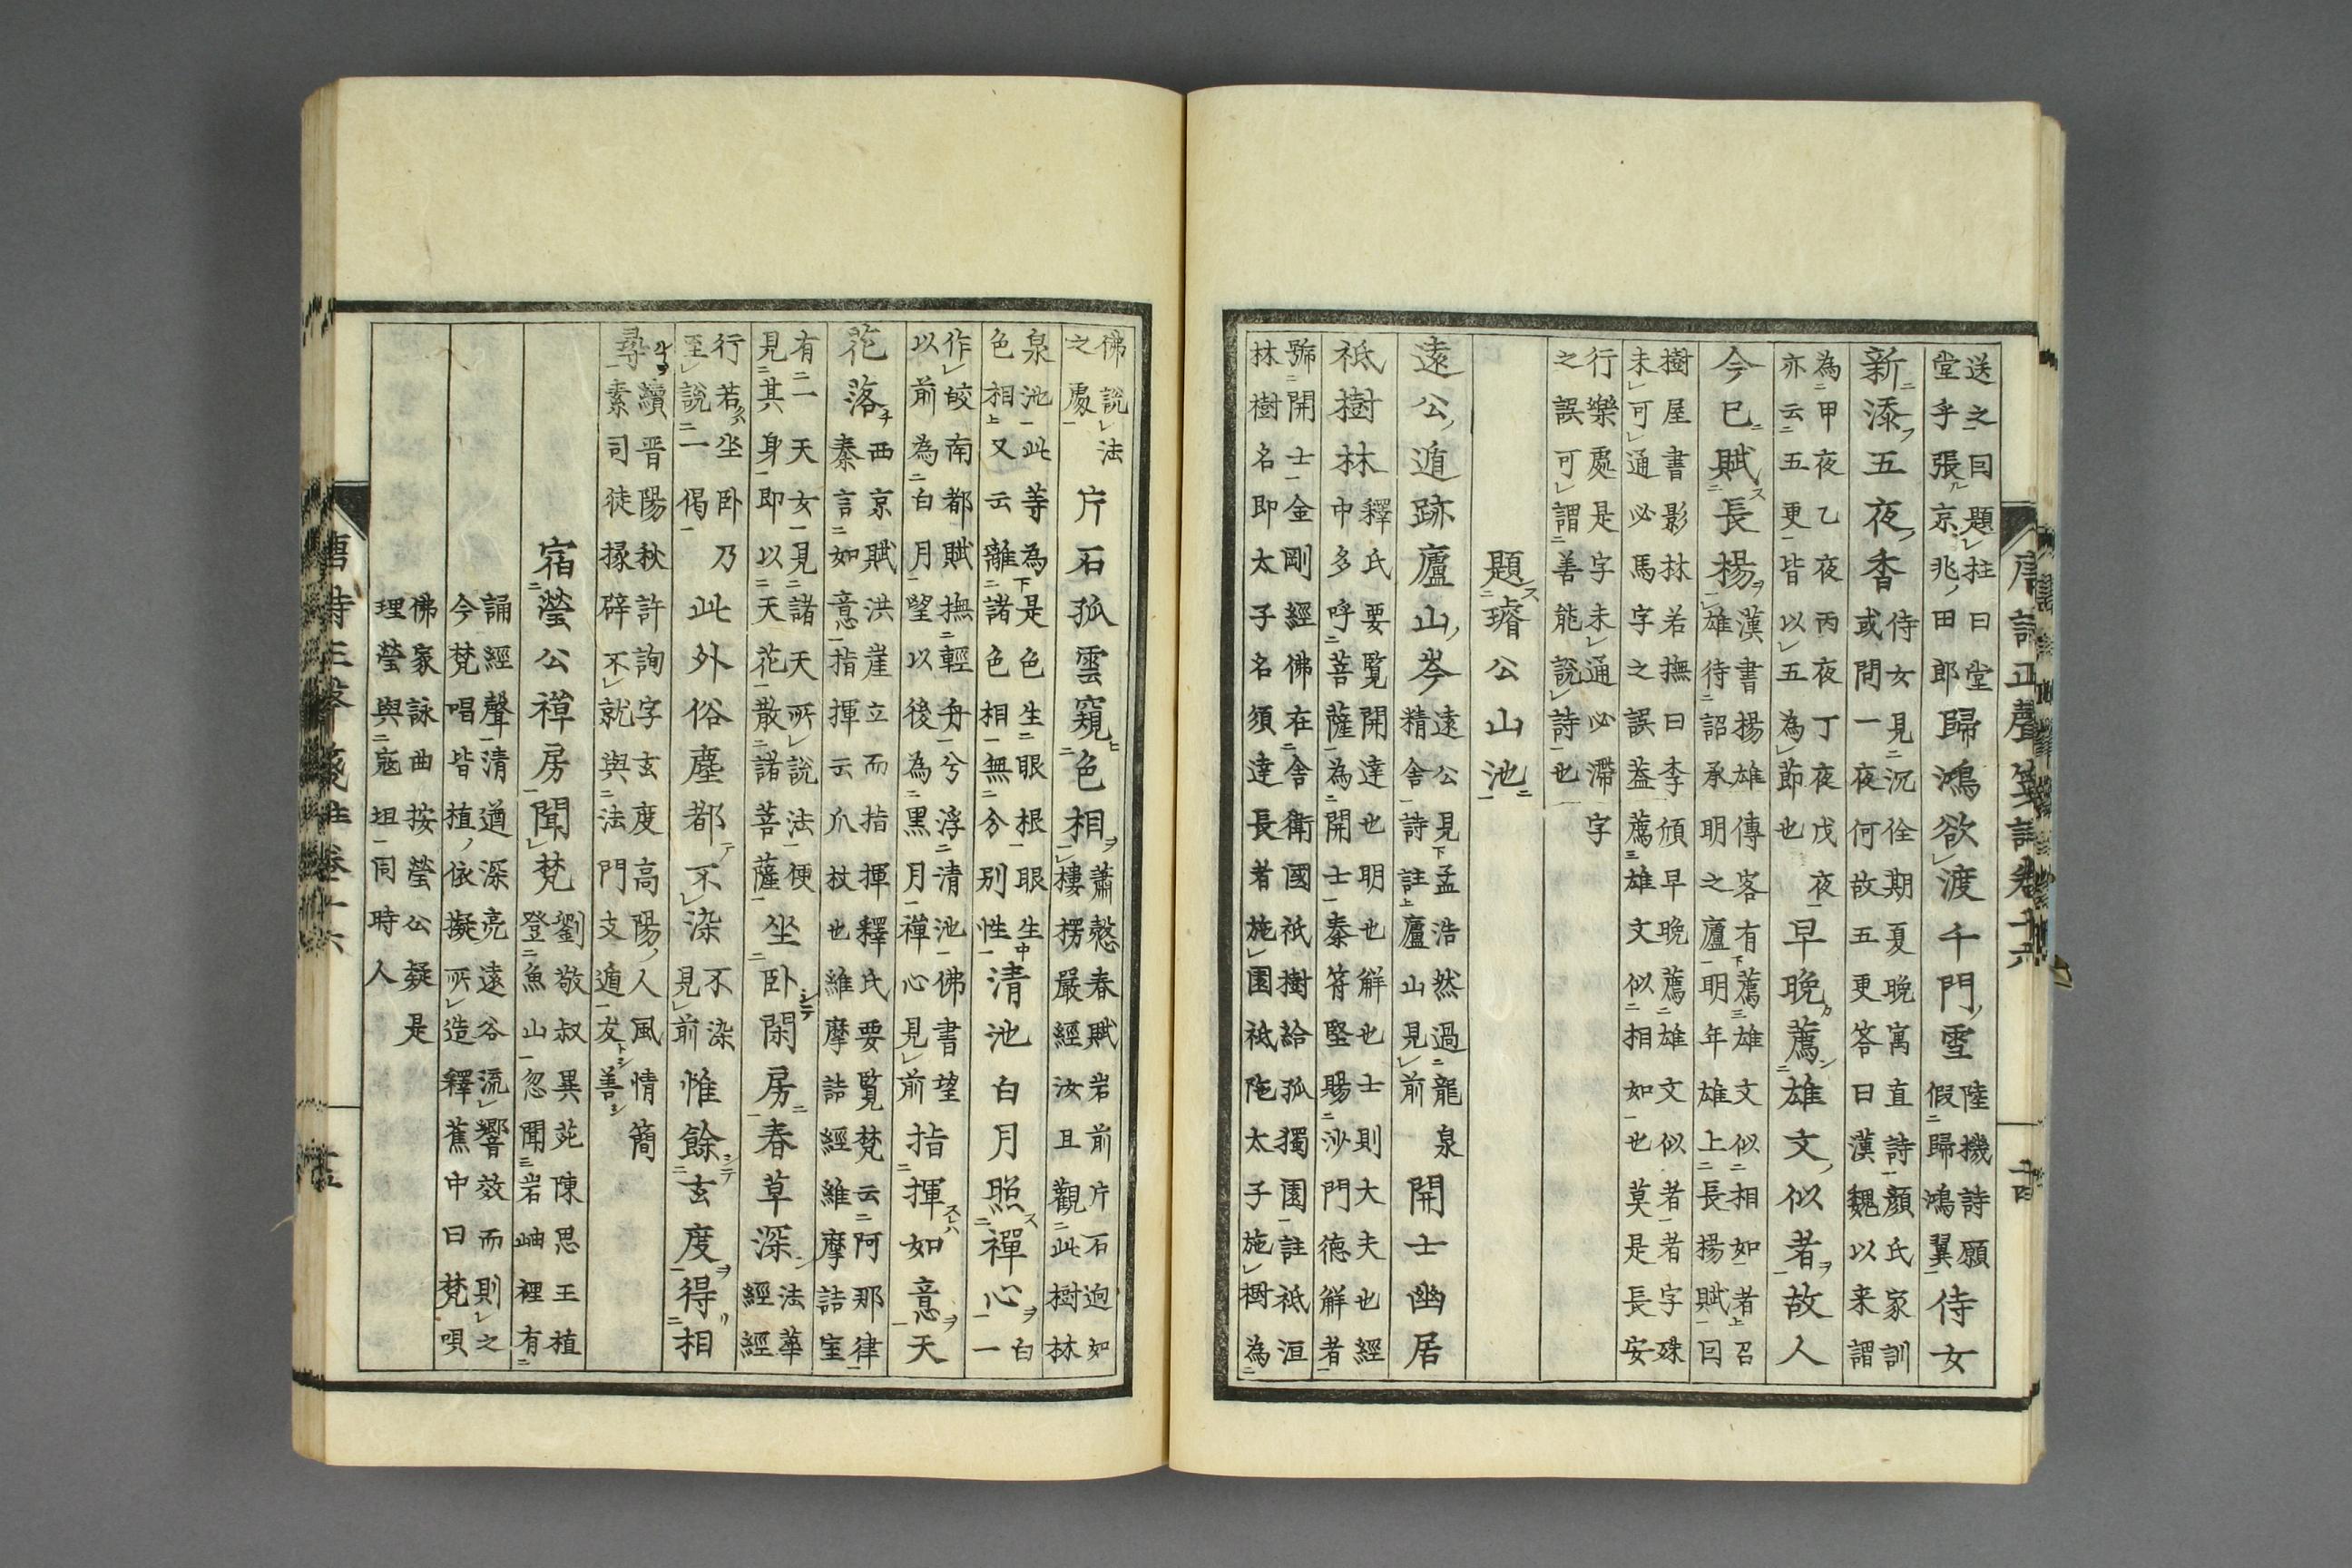 唐詩正聲箋註卷十六
送之曰題柱曰堂
堂乎張京兆田郎
歸鴻欲渡千門雪
陸機詩願
假歸鴻翼
侍女
新添五夜香
侍女見沉佺期夏晩寓直詩顔氏家訓
或問一夜何故五更答曰漢魏以来謂
為甲夜乙夜丙夜丁夜戊夜
亦云五更皆以五為節也
早晩薦雄文似者故人
今已賦長楊
漢書揚雄傳客有薦雄文似相如者召
雄待詔承明之廬明年雄上長揚賦曰
樹屋書影林若撫曰李頎早晩薦雄文似者者字殊
未可通必馬字之誤蓋薦雄文似相如也莫是長安
行樂處是字未通必滯字
之誤可謂善能說詩也
題璿公山池
遠公遁跡廬山岑
遠公見孟浩然過龍泉
精舎詩註廬山見前
開士幽居
祗樹林
釋氏要覧開達也明也解也士則大夫也經
中多呼菩薩為開士秦符堅賜沙門德解者
號開士金剛經佛在舎衛國祗樹給孤獨園註祗洹
林樹名即太子名須達長者施園祗陁太子施樹為
佛説法
之處
片石孤雲窺色相
蕭慤春賦岩前片石迥如
樓楞嚴經汝且觀此樹林
泉池此等為是色生眼根眼生
色相又云離諸色相無分别性
清池白月照禪心
白
一
作皎南都賦撫輕舟兮浮清池佛書望
以前為白月望以後為黒月禪心見前
指揮如意天
花落
西京賦洪崖立而指揮釋氏要覧梵云阿那律
秦言如意指揮云爪杖也維摩詰經維摩詰室
有一天女見諸天所説法便
見其身即以天花散諸菩薩
坐卧閑房春草深
法華
經經
行若坐卧乃
至説一偈
此外俗塵都不染
不染
見前
惟餘玄度得相
尋
續晋陽秋許詢字玄度高陽人風情簡
素司徒掾辟不就與法門支遁友善
宿瑩公禅房聞梵
劉敬叔異苑陳思王植
登魚山忽聞岩岫裡有
誦經聲清遒深亮遠谷流響效而則之
今梵唱皆植依擬所造釋蕉中曰梵唄
佛家詠曲按瑩公疑是
理瑩與寇坦同時人